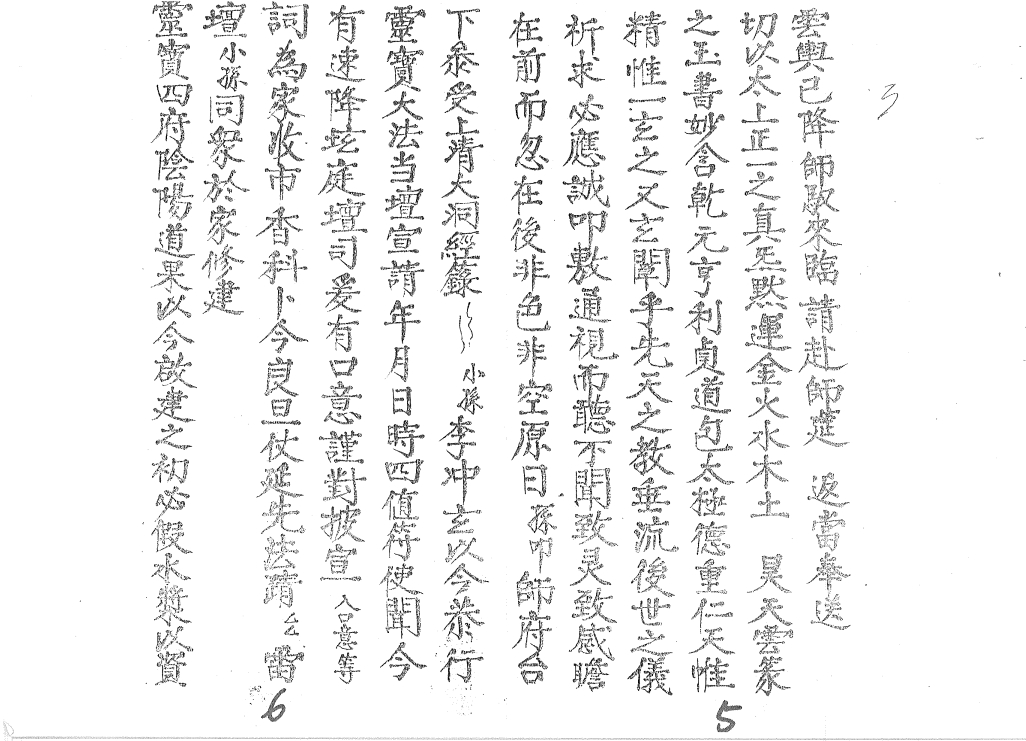 3
雲輿已降師馭來臨請赴師筵 返當奉送
切以太上正一之真炁默運金火水木土 昊天雲篆
之玉書妙含乾元亨利貞道包太極德重仁天惟
精惟一玄之又玄闡乎先天之教垂流後世之儀
祈求必應誠叩敷通視而聽不聞致灵致感瞻
在前而忽在後非色非空原曰孫叩師府台
下叅受上清大洞經籙 小孫李冲玄以今叅行
靈寶大法当壇宣請年月日時四值符使聞今
有速降玆庭壇司爰有口意謹對披宣 入口意等
詞為家收市香科卜今良旦仗延先法 云云 當
壇小孫同衆於家修建
靈寶四府陰陽道果以今啟建之初必假水漿以資
5
6